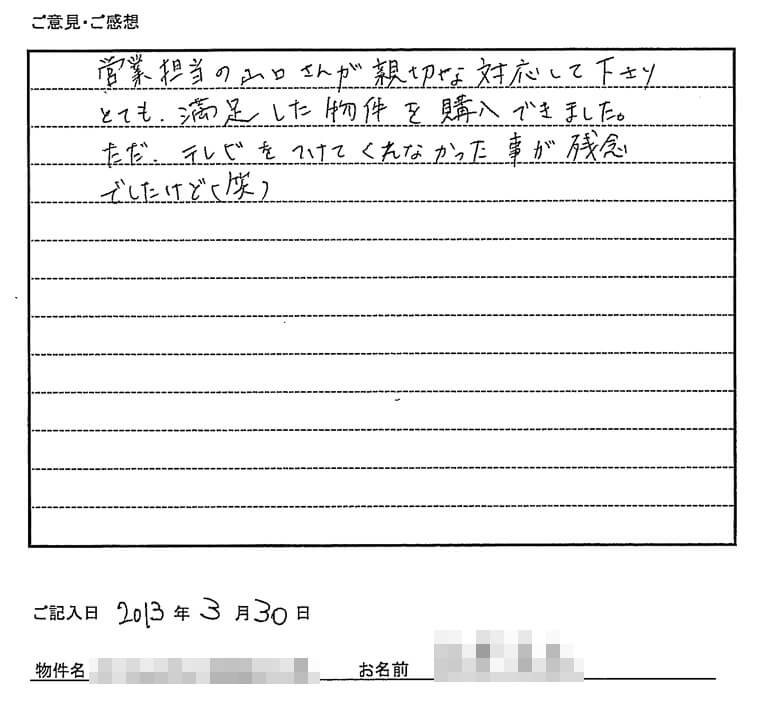 ご意見・ご感想
営業担当の山口さんが親切な対応して下さり
とても、満足した物件を購入できました。
ただ、テレビをつけてくれなかった事が残念
でしたけど(笑)
ご記入日 2013年3月30日
物件名 お名前